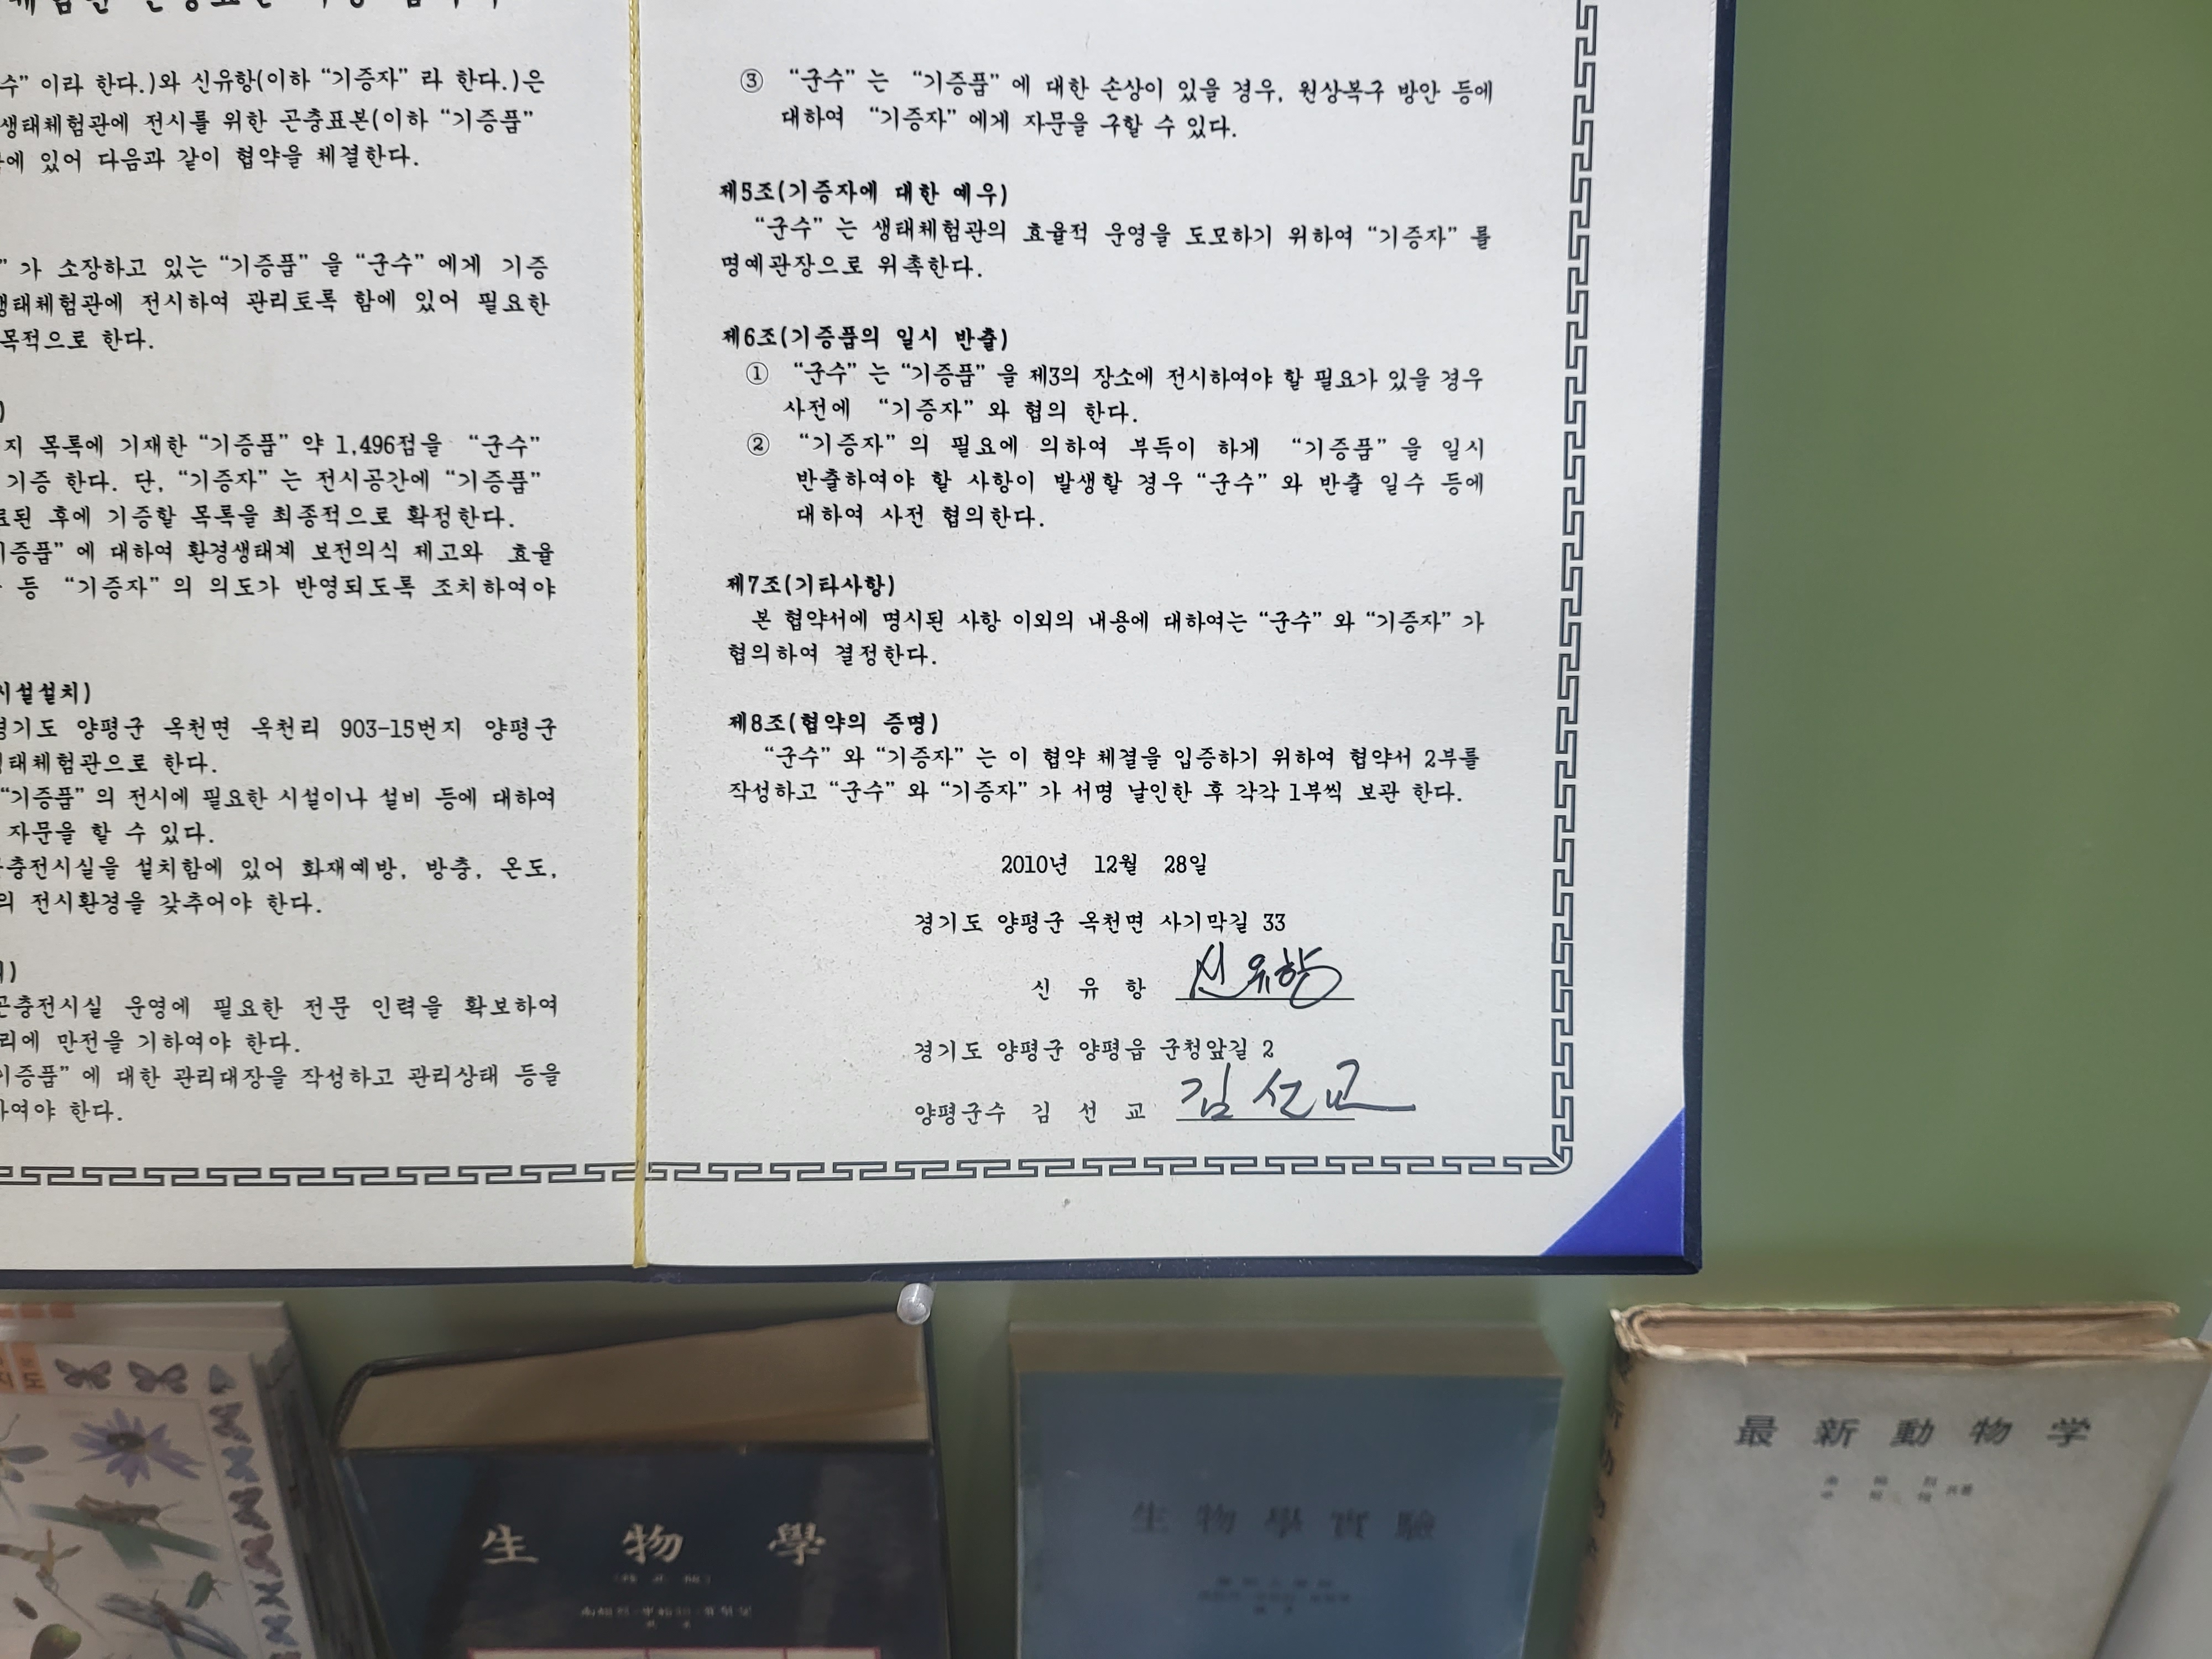 수” 이라 한다.)와 신유항(이하 “기증자” 라 한다.)은
생태체험관에 전시를 위한 곤충표본(이하 “기증품”
에 있어 다음과 같이 협약을 체결한다.
” 가 소장하고 있는 “기증품” 을 “군수” 에게 기증
생태체험관에 전시하여 관리토록 함에 있어 필요한
목적으로 한다.
)
지 목록에 기재한 “기증품” 약 1,496점을 “군수”
기증 한다. 단, “기증자” 는 전시공간에 “기증품”
된 후에 기증할 목록을 최종적으로 확정한다.
기증품” 에 대하여 환경생태계 보전의식 제고와 효율
등 “기증자” 의 의도가 반영되도록 조치하여야
시설설치)
경기도 양평군 옥천면 옥천리 903-15번지 양평군
생태체험관으로 한다.
“기증품” 의 전시에 필요한 시설이나 설비 등에 대하여
자문을 할 수 있다.
곤충전시실을 설치함에 있어 화재예방, 방충, 온도,
의 전시환경을 갖추어야 한다.
)
곤충전시실 운영에 필요한 전문 인력을 확보하여
리에 만전을 기하여야 한다.
기증품” 에 대한 관리대장을 작성하고 관리상태 등을
하여야 한다.
③ “군수” 는 “기증품” 에 대한 손상이 있을 경우, 원상복구 방안 등에
대하여 “기증자” 에게 자문을 구할 수 있다.
제5조(기증자에 대한 예우)
“군수” 는 생태체험관의 효율적 운영을 도모하기 위하여 “기증자” 를
명예관장으로 위촉한다.
제6조(기증품의 일시 반출)
① “군수” 는 “기증품” 을 제3의 장소에 전시하여야 할 필요가 있을 경우
사전에 “기증자” 와 협의 한다.
② “기증자” 의 필요에 의하여 부득이 하게 “기증품” 을 일시
반출하여야 할 사항이 발생할 경우 “군수” 와 반출 일수 등에
대하여 사전 협의한다.
제7조(기타사항)
본 협약서에 명시된 사항 이외의 내용에 대하여는 “군수” 와 “기증자” 가
협의하여 결정한다.
제8조(협약의 증명)
“군수” 와 “기증자” 는 이 협약 체결을 입증하기 위하여 협약서 2부를
작성하고 “군수” 와 “기증자” 가 서명 날인한 후 각각 1부씩 보관 한다.
2010년 12월 28일
경기도 양평군 옥천면 사기막길 33
신 유 항 신유항
경기도 양평군 양평읍 군청앞길 2
양평군수 김 선 교 김선교
生 物 學
生 物 學 實 驗
最 新 動 物 学